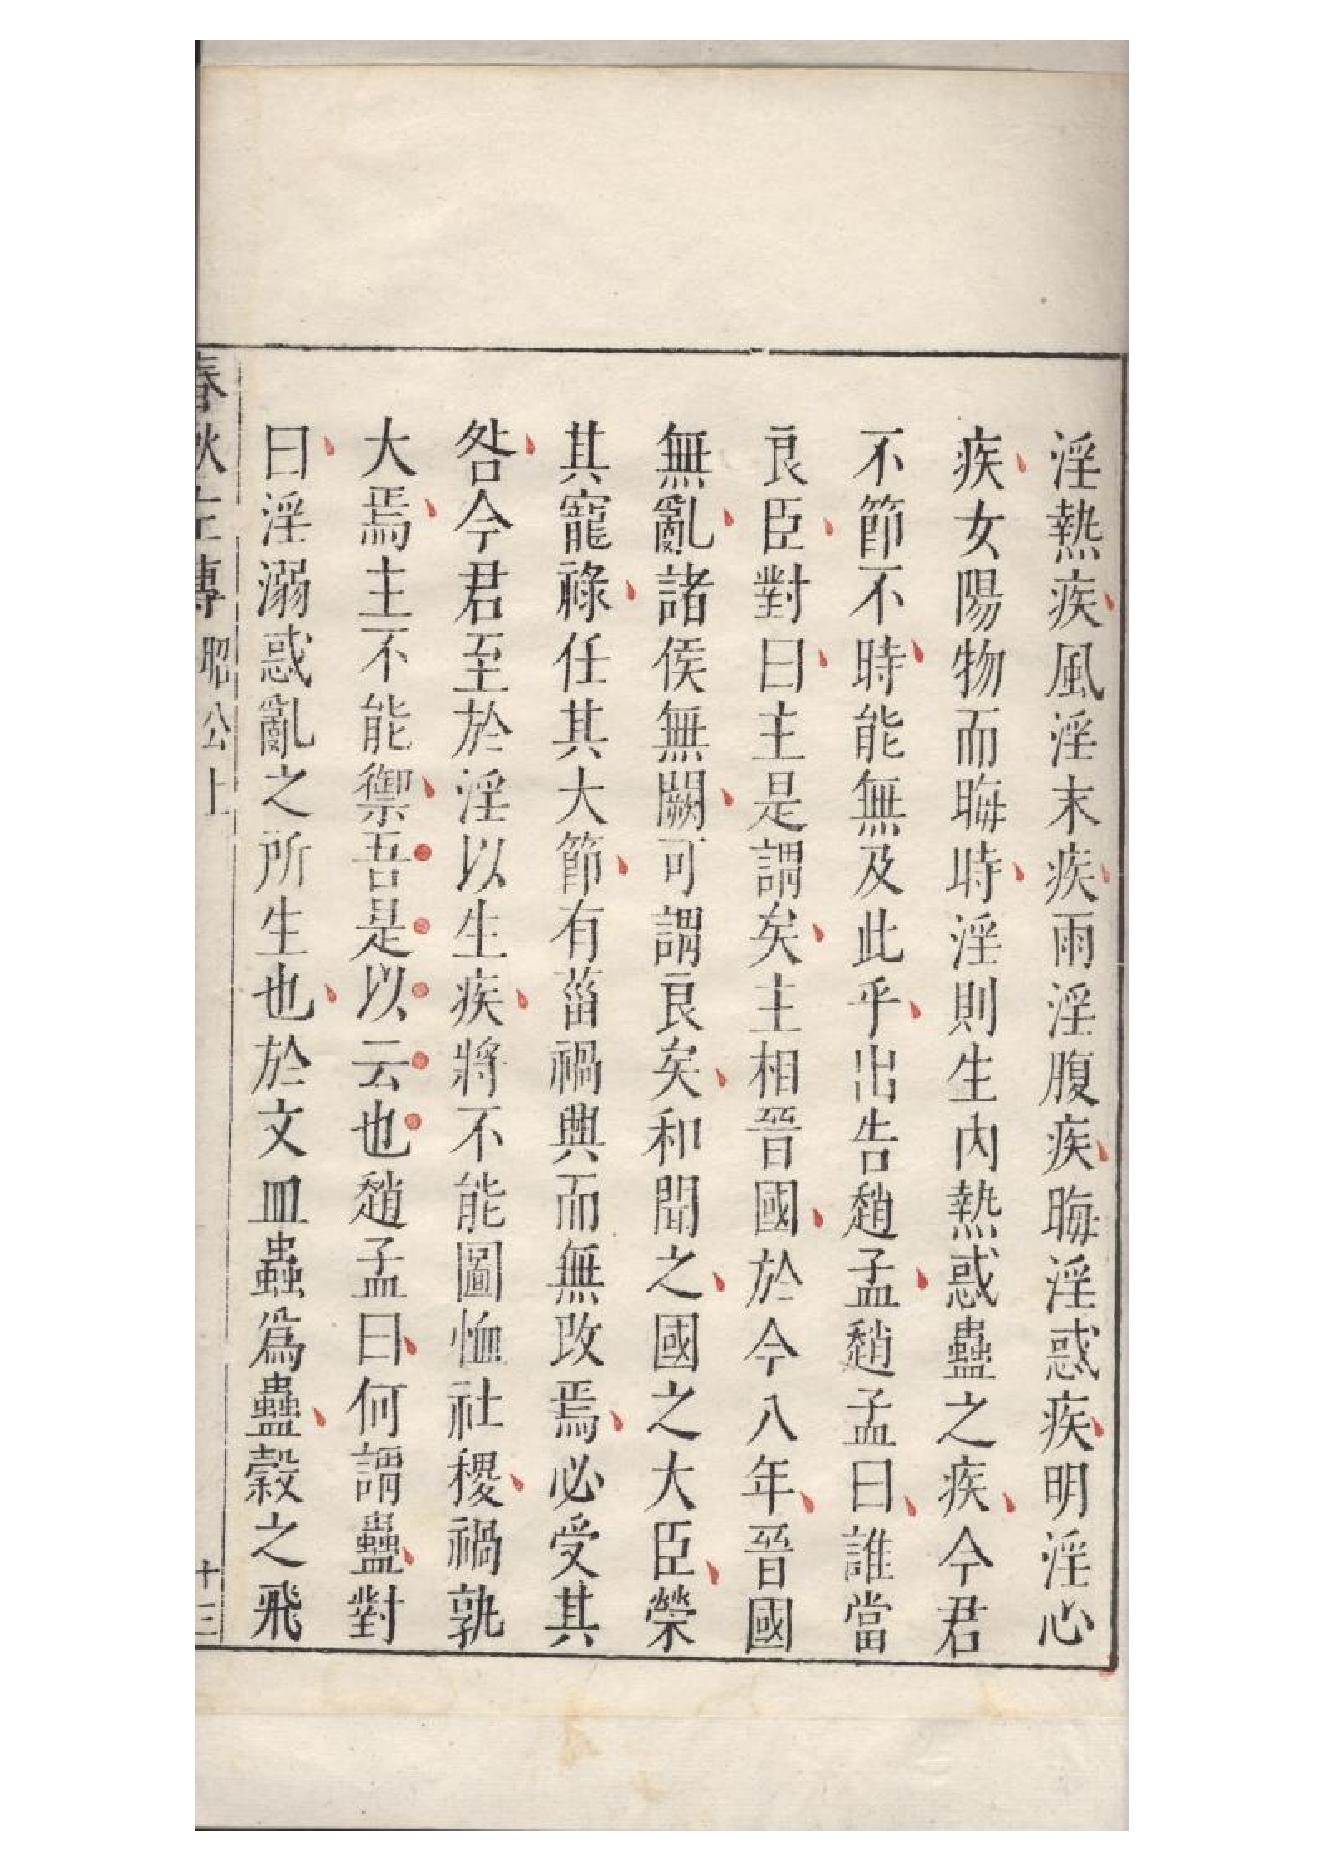 淫熱疾風淫末疾雨淫腹疾晦淫惑疾明淫心
疾女陽物而晦時淫則生内熱惑蠱之疾今君
不節不時能無及此乎出告趙孟趙孟曰誰當
良臣對曰主是謂矣主相晉國於今八年晉國
無亂諸侯無闕可謂良矣和聞之國之大臣榮
其寵祿任其大節有菑禍興而無改焉必受其
咎今君至於淫以生疾將不能圖恤社稷禍孰
大焉主不能禦吾是以云也趙孟曰何謂蠱對
曰淫溺惑亂之所生也於文皿蟲爲蠱穀之飛
春秋左傳 昭公上 十三